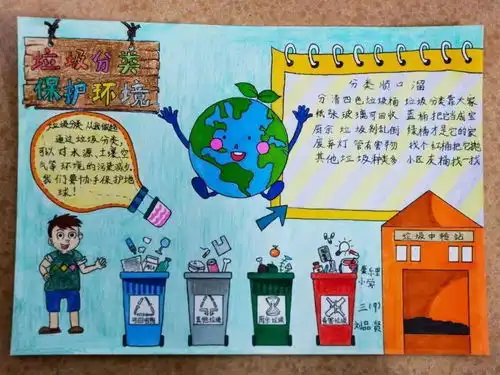 垃圾分类
保护环境
垃圾分类 从我做起
通过垃圾分类,
可以对水源、土壤、空
气等环境的污染减少。
我们要协手保护地
球!
分类顺口溜
分清四色垃圾桶 垃圾分类靠大家
纸张玻璃可回收 蓝桶把它当成宝
厨余垃圾别乱倒 绿桶才是它的家
废弃灯管有害物 找个红桶把它抛
其他垃圾种类多 小区灰桶找一找
垃圾中转站
可回收物
其他垃圾
厨余垃圾
有害垃圾
小学
三(7)